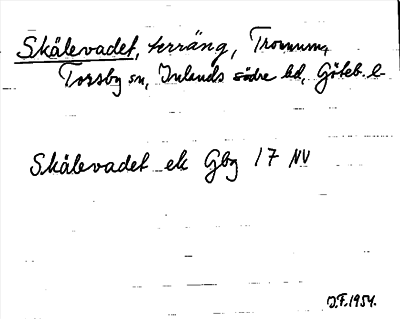 Skälevadet, terräng, Tronum,
Torsby sn, Inlands södre hd, Göteb. l.
Skälevadet ek Gbg 17 NV
J.F. 1954.